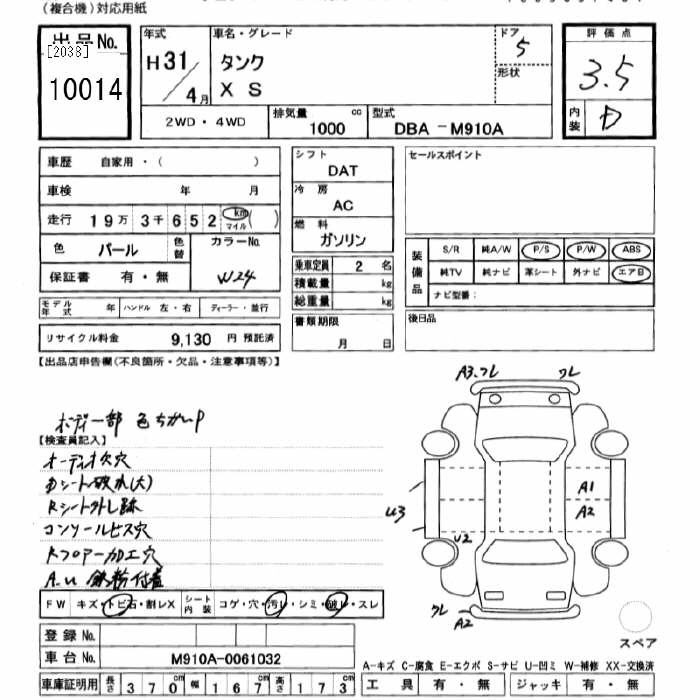 (複合機)対応用紙
出品No.
[2038]
10014
年式
H31/4月
車名・グレード
タンク
X S
ドア
5
形状
評価点
3.5
内装
D
2WD・4WD
排気量 1000 cc
型式 DBA-M910A
車歴 自家用・( )
車検 年 月
走行 19万3千652 km マイル ( )
色 パール 色替
カラーNo.
W24
保証書 有・無
シフト
DAT
冷房
AC
燃料
ガソリン
乗車定員 2 名
積載量 kg
総重量 kg
書類期限
月 日
セールスポイント
装備品
S/R 純A/W P/S P/W ABS
純TV 純ナビ 革シート 外ナビ エアB
ナビ型番:
後日品
モデル年式 年 ハンドル 左・右 ディーラー・並行
リサイクル料金 9,130 円 預託済
【出品店申告欄(不良箇所・欠品・注意事項等)】
ボディ一部 色ちがいP
【検査員記入】
オーディオ欠穴
Dシート破れ(大)
Rシート外し跡
コンソールビス穴
Rフロアー加工穴
A.U 鉄粉付着
A3.フレ
クレ
A1
A2
U3
U2
クレ
A2
スペア
FW キズ・トビ石・割レX シート内装 コゲ・穴・汚レ・シミ・破レ・スレ
登録No.
車台No. M910A-0061032
車庫証明用 長さ 370cm 幅 167cm 高さ 173cm
A-キズ C-腐食 E-エクボ S-サビ U-凹ミ W-補修 XX-交換済
工具 有・無 ジャッキ 有・無